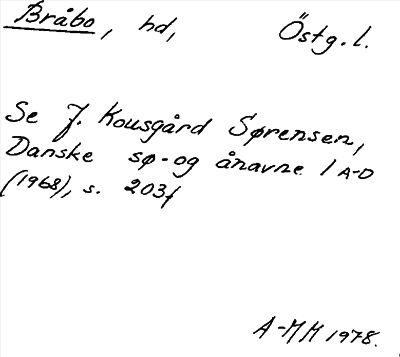 Bråbo, hd, Östg.l.
Se J. Kousgård Sørensen,
Danske sø- og ånavne 1 A-D
(1968), s. 203f
A-MM 1978.